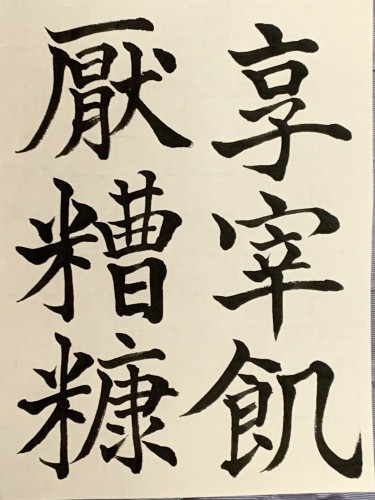 享宰飢
厭糟糠